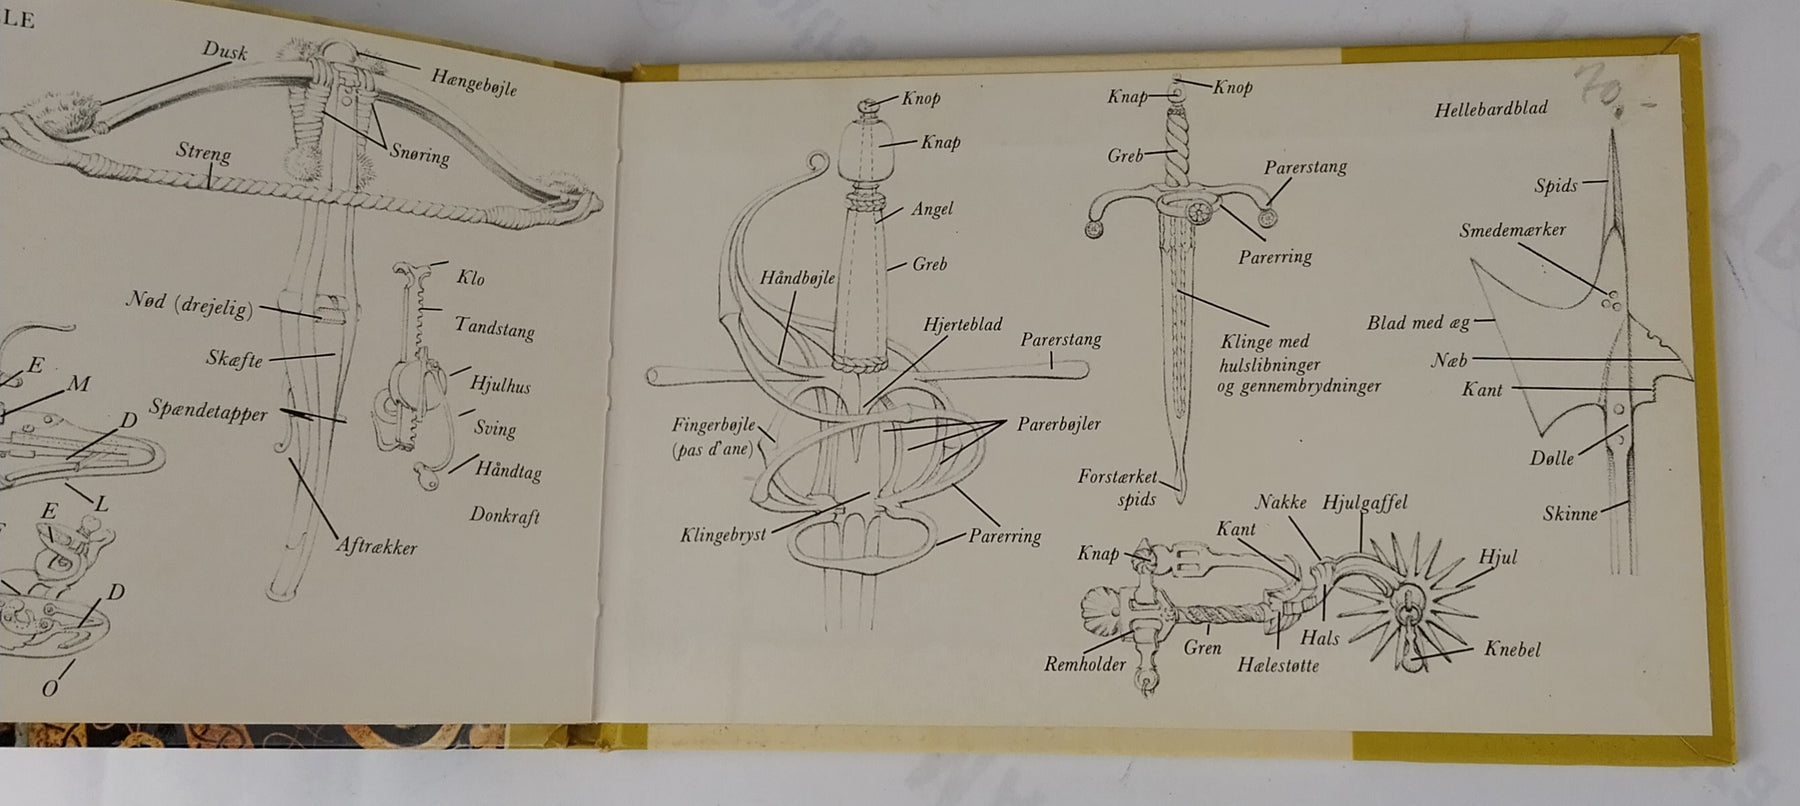 LE
Dusk
Hængebøjle
Streng
Snøring
Nød (drejelig)
Klo
Tandstang
Skæfte
Hjulhus
Spændetapper
Sving
Håndtag
Donkraft
Aftrækker
E
M
D
L
E
D
O
Knop
Knap
Angel
Greb
Håndbøjle
Hjerteblad
Parerstang
Fingerbøjle
(pas d'ane)
Parerbøjler
Klingebryst
Parerring
Knap
Knop
Greb
Parerstang
Parerring
Klinge med
hulslibninger
og gennembrydninger
Forstærket
spids
70,-
Hellebardblad
Spids
Smedemærker
Blad med æg
Næb
Kant
Dølle
Skinne
Nakke
Hjulgaffel
Kant
Knap
Hjul
Remholder
Gren
Hælestøtte
Hals
Knebel